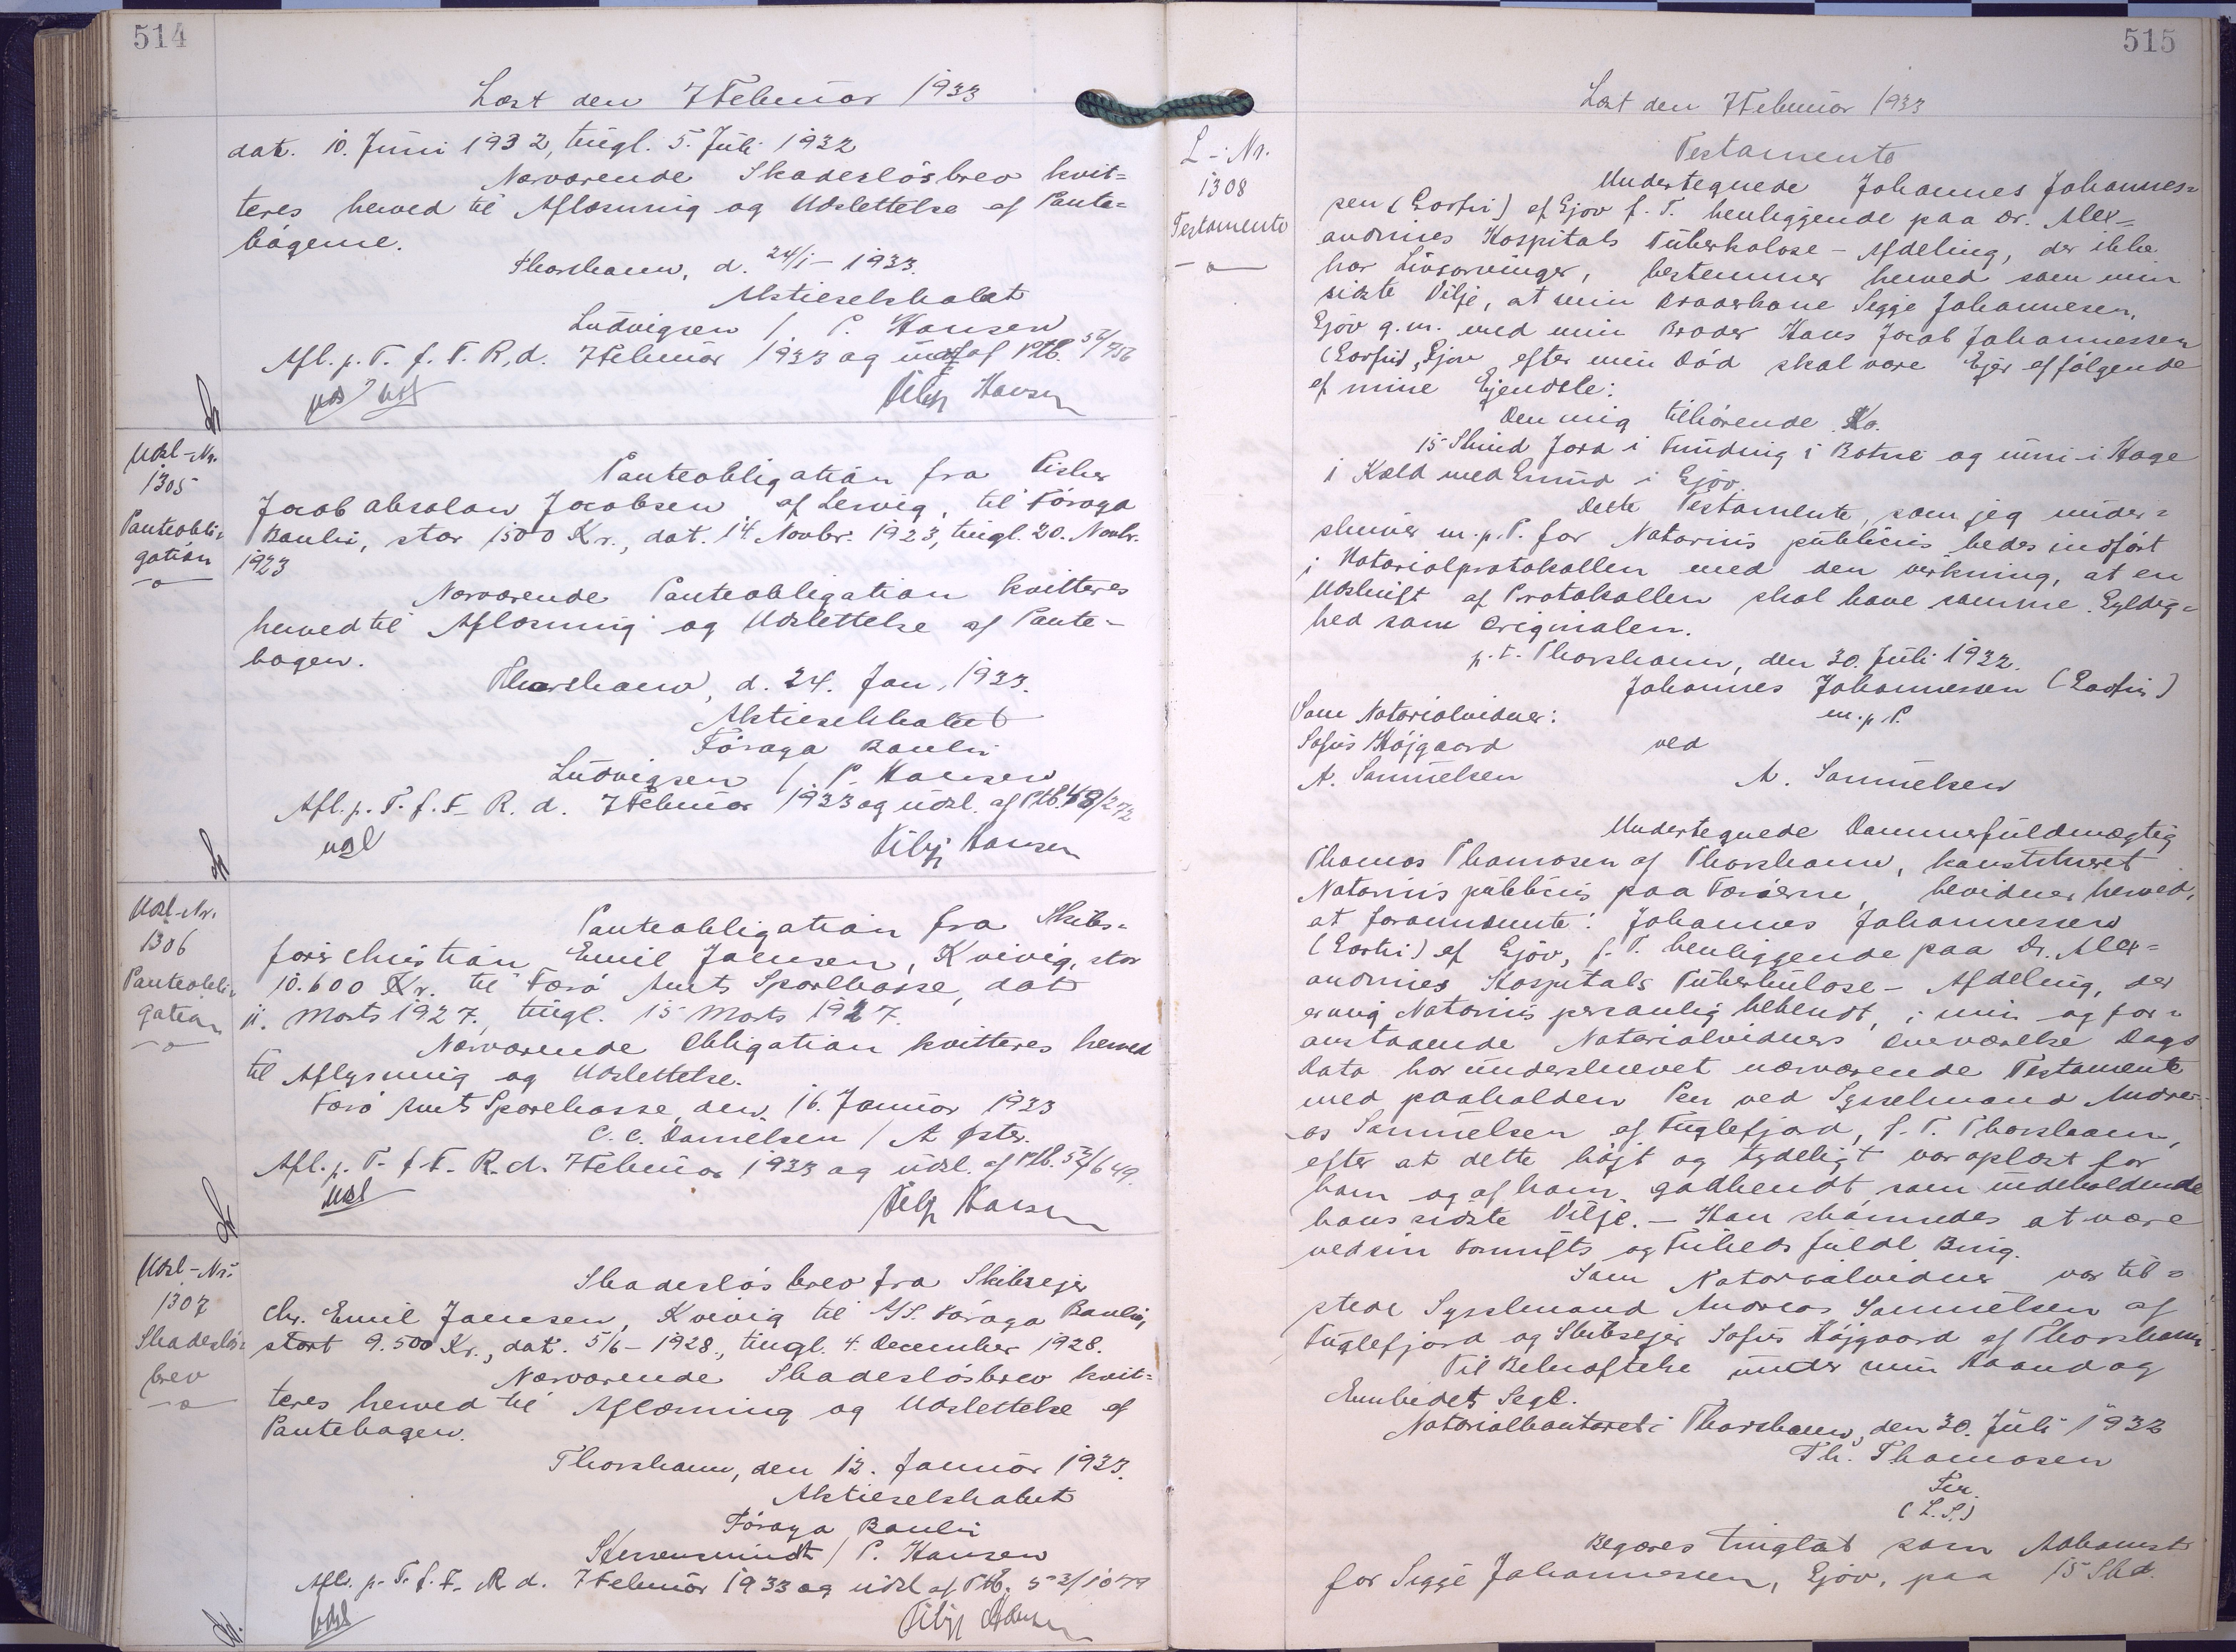 514
Læst den 7 Februar 1933
dat. 10. Juni 1932, tingl. 5. Juli 1932
Nærværende Skadesløsbrev kvit=
teres herved til Aflæsning og Udslettelse af Pante=
bøgerne.
Thorshavn, d. 24/1 - 1933.
Aktieselskabet
Ludvigsen / P. Hansen
Afl. p. T. f. F. R. d. 7 Februar 1933 og udsl af Ptb.
Udsl-Nr.
1305
Panteobli=
gation
Panteobligation fra Fisker
Jacob Absalon Jacobsen af Lervig, til Føroya
Banki, stor 1500 Kr., dat. 14 Novbr. 1923, tingl. 20. Novbr.
1923
Nærværende Panteobligation kvitteres
herved til Aflæsning og Udslettelse af Pante-
bogen.
Thorshavn, d. 24. Jan. 1933.
Aktieselskabet
Føroya Banki
Ludvigsen / P. Hansen
Afl. p. T. f. F. R. d. 7 Februar 1933 og udsl. af Ptb. 48/272
udsl
Hansen
Udsl-Nr.
1306
Panteobli=
gation
Panteobligation fra Skibs=
fører Christian Emil Joensen, Kvivig, stor
10.600 Kr. til Færø Amts Sparekasse, dat
11. Marts 1927, tingl. 15 Marts 1927.
Nærværende Obligation kvitteres herved
til Aflysning og Udslettelse.
Færø Amts Sparekasse, den 16. Januar 1933
C. C. Danielsen / A Øster.
Afl. p. T. f. F. R. d. 7 Februar 1933 og udsl. af Ptb. 52/649.
udsl
Hansen
Udsl-Nr.
1307
Skadesløs=
brev
Skadesløsbrev fra Skibsejer
Chr. Emil Joensen, Kvivig til A/S. Føroya Banki,
stort 9.500 Kr., dat. 5/6 - 1928., tingl. 4. December 1928.
Nærværende Skadesløsbrev kvit=
teres herved til Aflæsning og Udslettelse af
Pantebogen.
Thorshavn, den 12. Januar 1933.
Aktieselskabet
Føroya Banki
/ P. Hansen
Afl. p. T. f. F. R d. 7 Februar 1933 og udsl af Ptb. 53/1079
udsl
515
Læst den 7 Februar 1933
L-Nr.
1308
Testamente
Testamente
Undertegnede Johannes Johannes=
sen af Gjov p. T. henliggende paa Dr. Alex=
andrines Hospitals Tuberkolose - Afdeling, der ikke
har Livsarvinger, bestemmer herved som min
sidste Vilje, at min Broderkone Sigge Johannesen,
Gjov g.m. med min Broder Hans Jacob Johannessen
Gjov efter min Død skal være Ejer af følgende
af mine Ejendele:
Den mig tilhørende Ko.
15 Skind Jord i Funding i Botni og inni i Hage
i Kald med Grund i Gjov.
Dette Testamente, som jeg under=
skriver m.p.P. for Notarius publicus bedes indført
i Notarialprotokollen med den Virkning, at en
Udskrift af Protokollen skal have samme Gyldig=
hed som Originalen.
p.t. Thorshavn, den 30. Juli 1932.
Johannes Johannessen
m.p.P.
Som Notarialvidner:
Sofus Højgaard ved
A. Samuelsen A. Samuelsen
Undertegnede Dommerfuldmægtig
Thomas Thomasen af Thorshavn, konstitueret
Notarius publicus paa Færøerne, bevidner herved,
at forannævnte: Johannes Johannessen
af Gjov, p. T. henliggende paa Dr. Alex=
andrines Hospitals Tuberkulose - Afdeling, der
er mig Notarius personlig bekendt, i min og for=
anstaaende Notarialvidners Overværelse Dags
Dato har underskrevet nærværende Testamente
med paaholden Pen ved Sysselmand Andre=
as Samuelsen af Fuglefjord, p. T. Thorshavn,
efter at dette højt og tydeligt var oplæst for
ham og af ham godkendt som indeholdende
hans sidste Vilje. - Han skønnedes at være
ved sin Fornufts og Friheds fulde Brug.
Som Notarialvidner var til=
stede Sysselmand Andreas Samuelsen af
Fuglefjord og Skibsejer Sofus Højgaard af Thorshavn
Til Bekræftelse under min Haand og
Embedets Segl.
Notarialkontoret i Thorshavn, den 30. Juli 1932
Th. Thomasen
(L.S.)
Begæres tinglæst som Adkomst
for Sigge Johannessen, Gjov, paa 15 Skd.